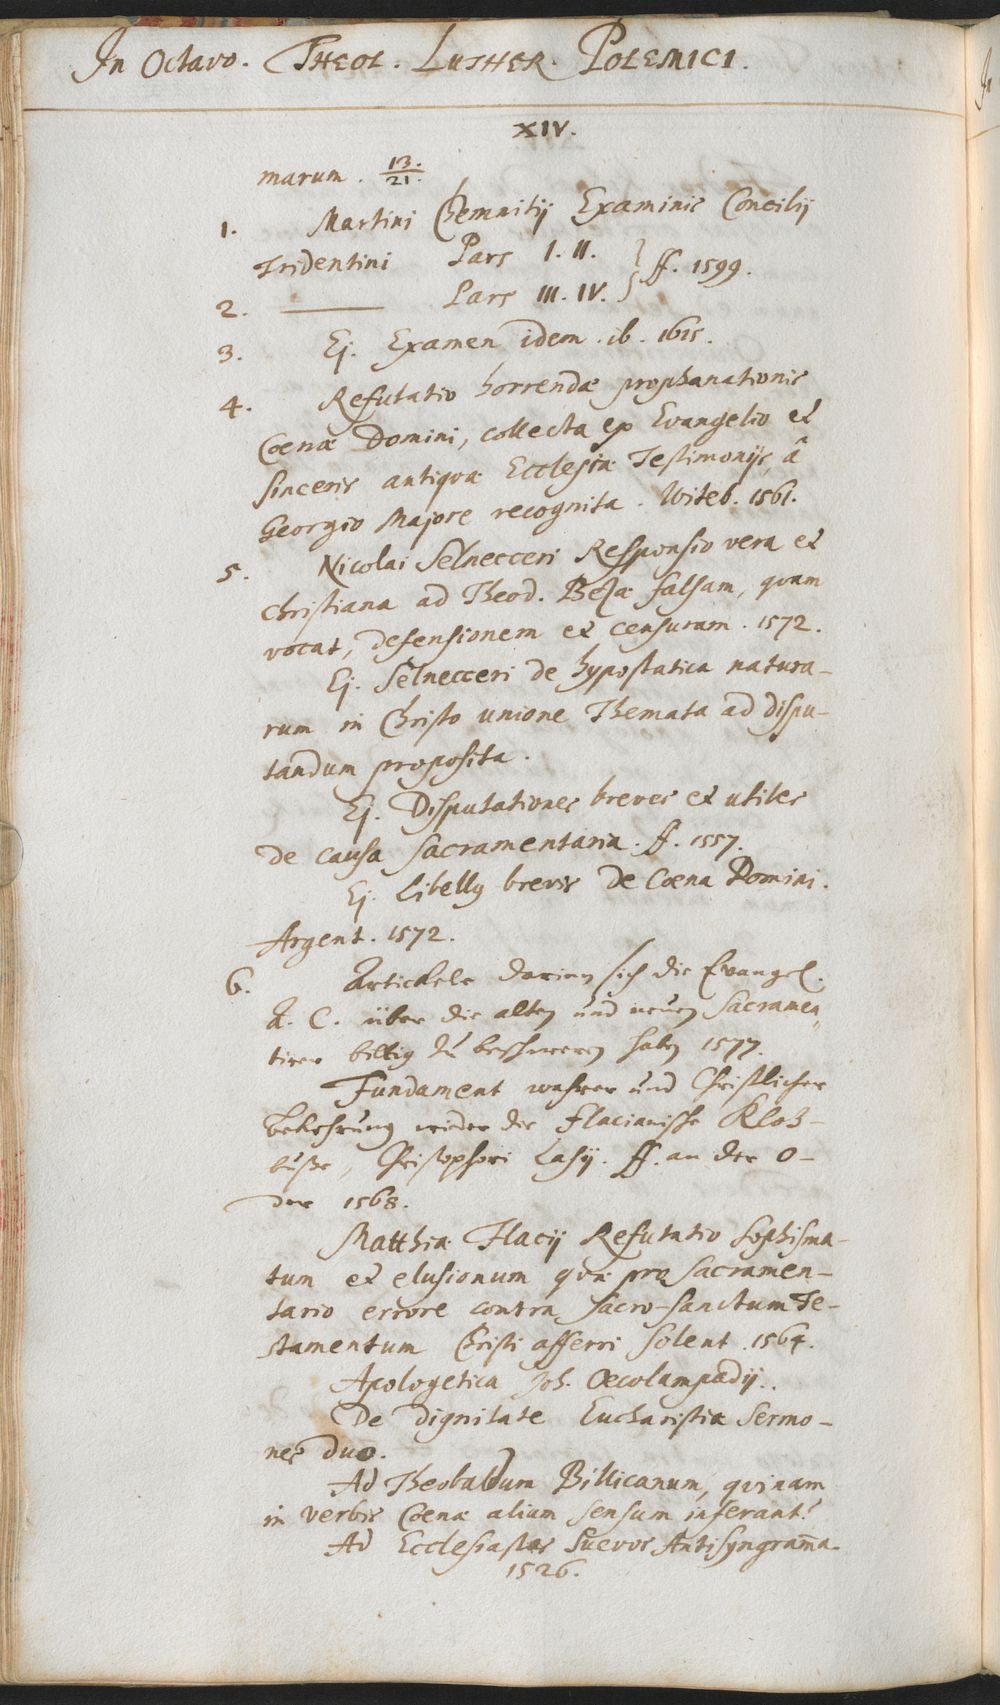 In Octavo. THEOL. LUTHER. POLEMICI.
XIV.
marum. 13./21.
1. Martini Chemnitij Examinis Concilij
Tridentini Pars I. II. } ff. 1599.
2. ——— Pars III. IV.
3. Ej. Examen idem. ib. 1615.
4. Refutatio horrendæ prophanationis
Coenæ Domini, collecta ex Evangelio et
sinceris antiquæ Ecclesiæ Testimonijs, â
Georgio Majore recognita. Witeb. 1561.
5. Nicolai Selnecceri Responsio vera et
christiana ad Theod. Bezæ falsam, quam
vocat, defensionem et censuram. 1572.
Ej. Selnecceri de hypostatica natura-
rum in Christo unione Themata ad dispu-
tandum proposita.
Ej. Disputationes breves et utiles
de causa sacramentaria. ff. 1557.
Ej. Libellus brevis de Coena Domini.
Argent. 1572.
6. Artickele darinn sich die Evangel.
A. C. über die alten und neuen Sacramen„
tirer billig zu beschweren haben 1577.
Fundament wahrer und Christlicher
Bekehrung wieder die Flacianische Kloz-
buße, Christophori Lasij. ff. an der O-
der 1568.
Matthiæ Flacij Refutatio Sophisma-
tum et elusionum quæ pro Sacramen-
tario errore contra sacro-sanctum Te-
stamentum Christi afferri solent. 1564.
Apologetica Joh. Oecolampadij.
De dignitate Eucharistiæ Sermo-
nes duo.
Ad Theobaldum Billicanum, quinam
in verbis Coenæ alium sensum inferant?
Ad Ecclesiastas Suevos Antisyngram̄a.
1526.
In